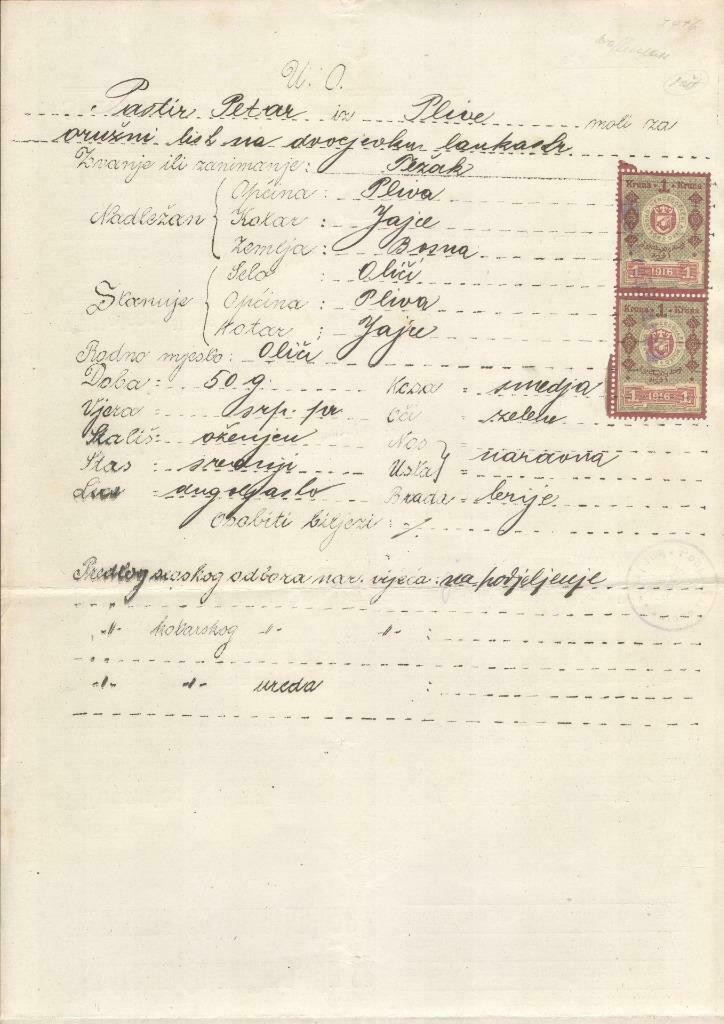 U. O.
Pastir Petar iz Plive moli za
oružni list na dvocjevku lankastr.
Zvanje ili zanimanje: Težak
Nadležan
Općina: Pliva
Kotar: Jajce
Zemlja: Bosna
Stanuje
Selo: Olići
Općina: Pliva
Kotar: Jajce
Rodno mjesto: Olići
Doba = 50 g. Kosa = smedja
Vjera = srp. pr Oči = zelene
Stališ = oženjen Nos
Stas = srednji Usta naravna
Lice = dugoljasto Brada = brije
Osobiti biljezi: %
Predlog seoskog odbora nar. vijeća: na podjeljenje
-"- kotarskog -"- -"- :
-"- -"- ureda :
Kruna 1 Kruna
1 1916 1
Kruna 1 Kruna
1 1916 1